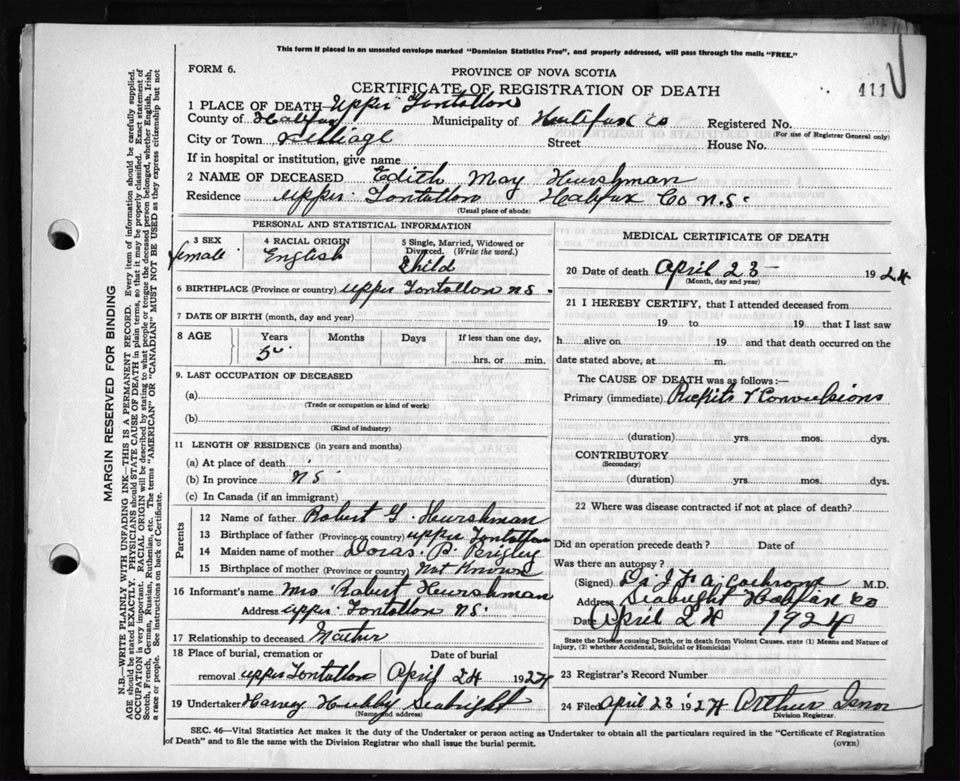 This form if placed in an unsealed envelope marked "Dominion Statistics Free", and properly addressed, will pass through the mails "FREE."
FORM 6.
PROVINCE OF NOVA SCOTIA
CERTIFICATE OF REGISTRATION OF DEATH
411
1 PLACE OF DEATH Upper Tantallon
County of Halifax Municipality of Halifax Co Registered No.
(For use of Registrar General only)
City or Town Village Street House No.
If in hospital or institution, give name
2 NAME OF DECEASED Edith May Hurshman
Residence Upper Tantallon Halifax Co N.S.
(Usual place of abode)
PERSONAL AND STATISTICAL INFORMATION
3 SEX female
4 RACIAL ORIGIN English
5 Single, Married, Widowed or Divorced. (Write the word.) Child
6 BIRTHPLACE (Province or country) Upper Tantallon N S.
7 DATE OF BIRTH (month, day and year)
8 AGE Years Months Days If less than one day,
5 hrs. or min.
9. LAST OCCUPATION OF DECEASED
(a)
(Trade or occupation or kind of work)
(b)
(Kind of industry)
11 LENGTH OF RESIDENCE (in years and months)
(a) At place of death
(b) In province N S
(c) In Canada (if an immigrant)
Parents
12 Name of father Robert G. Hurshman
13 Birthplace of father (Province or country) Upper Tantallon
14 Maiden name of mother B.
15 Birthplace of mother (Province or country) Not Known
16 Informant's name Mrs Robert Hurshman
Address Upper Tantallon N S.
17 Relationship to deceased Mother
18 Place of burial, cremation or Date of burial
removal Upper Tantallon April 24 1924
19 Undertaker Harvey Hubley Seabright
(Name and address)
MEDICAL CERTIFICATE OF DEATH
20 Date of death April 23 1924
(Month, day and year)
21 I HEREBY CERTIFY, that I attended deceased from
19 to 19 that I last saw
h alive on 19 and that death occurred on the
date stated above, at m.
The CAUSE OF DEATH was as follows:—
Primary (immediate) Rickits & Convulsions
(duration) yrs. mos. dys.
CONTRIBUTORY
(Secondary)
(duration) yrs. mos. dys.
22 Where was disease contracted if not at place of death?
Did an operation precede death? Date of
Was there an autopsy?
(Signed) Dr J F A Cochrane M.D.
Address Seabright Halifax Co
Date April 24 1924
State the Disease causing Death, or in death from Violent Causes, state (1) Means and Nature of
Injury, (2) whether Accidental, Suicidal or Homicidal
23 Registrar's Record Number
24 Filed April 23 1924 Arthur
Division Registrar.
SEC. 46—Vital Statistics Act makes it the duty of the Undertaker or person acting as Undertaker to obtain all the particulars required in the "Certificate of Registration
of Death" and to file the same with the Division Registrar who shall issue the burial permit.
(OVER)
MARGIN RESERVED FOR BINDING
N.B.—WRITE PLAINLY WITH UNFADING INK—THIS IS A PERMANENT RECORD. Every item of information should be carefully supplied.
AGE should be stated EXACTLY. PHYSICIANS should STATE CAUSE OF DEATH in plain terms, so that it may be properly classified. Exact statement of
OCCUPATION is very important. RACIAL ORIGIN will be described by stating to what people or tongue the deceased person belonged, whether English, Irish,
Scotch, French, German, Russian, Ruthenian, etc. The terms "AMERICAN" OR "CANADIAN" MUST NOT BE USED as they express citizenship but not
a race or people. See instructions on back of Certificate.